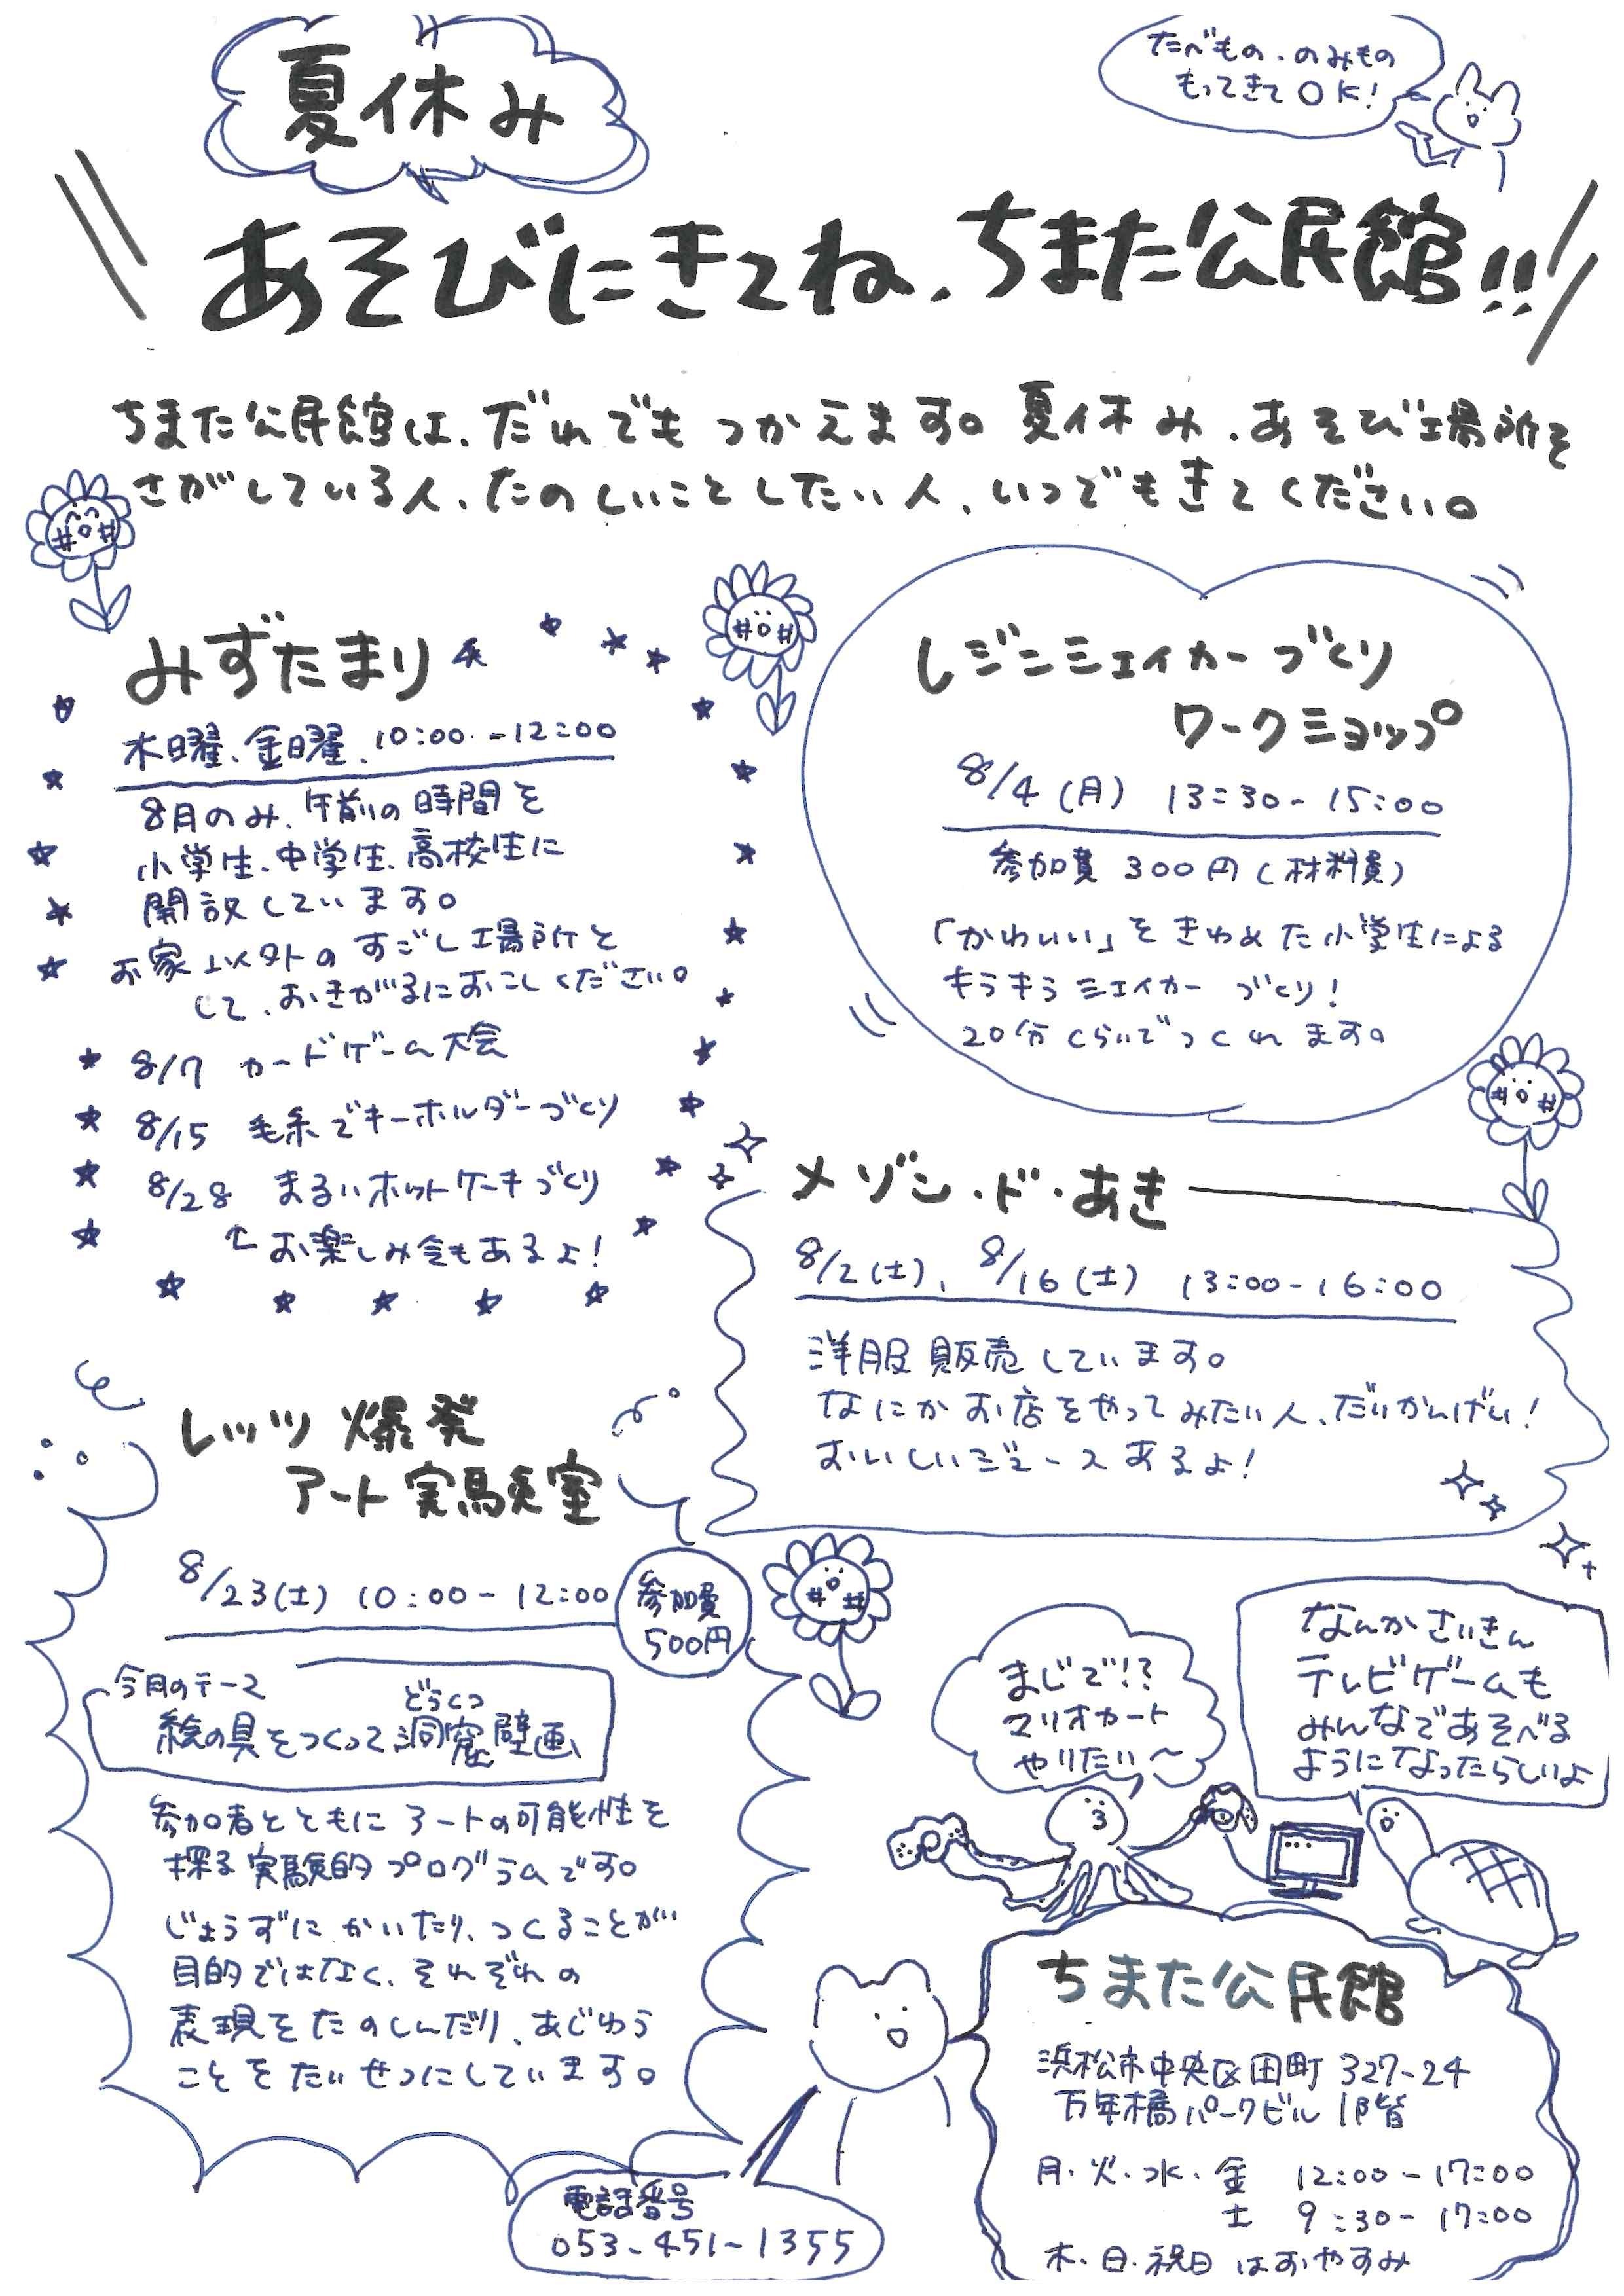 夏休み
たべもの・のみもの
もってきてOK!
あそびにきてね、ちまた公民館!!
ちまた公民館は、だれでもつかえます。夏休み、あそび場所を
さがしている人、たのしいことしたい人、いつでもきてください。
みずたまり
木曜、金曜、10:00-12:00
8月のみ、午前の時間を
小学生、中学生、高校生に
開設しています。
お家以外のすごし場所と
して、おきがるにおこしください。
8/7 カードゲーム大会
8/15 毛糸でキーホルダーづくり
8/28 まるいホットケーキづくり
↑お楽しみ会もあるよ!
レジンシェイカーづくり
ワークショップ
8/4(月) 13:30-15:00
参加費 300円(材料費)
「かわいい」をきわめた小学生による
キラキラシェイカーづくり!
20分くらいでつくれます。
メゾン・ド・あき
8/2(土)、8/16(土) 13:00-16:00
洋服販売しています。
なにかお店をやってみたい人、だいかんげい!
おいしいジュースあるよ!
レッツ爆発
アート実験室
8/23(土) 10:00-12:00
参加費
500円
今月のテーマ
どうくつ
絵の具をつくって洞窟壁画
参加者とともにアートの可能性を
探る実験的プログラムです。
じょうずにかいたり、つくることが
目的ではなく、それぞれの
表現をたのしんだり、あじわう
ことをたいせつにしています。
なんかさいきん
テレビゲームも
みんなであそべる
ようになったらしいよ
まじで!?
マリオカート
やりたい〜
ちまた公民館
浜松市中央区田町327-24
万年橋パークビル1階
月・火・水・金 12:00-17:00
土 9:30-17:00
木・日・祝日はおやすみ
電話番号
053-451-1355